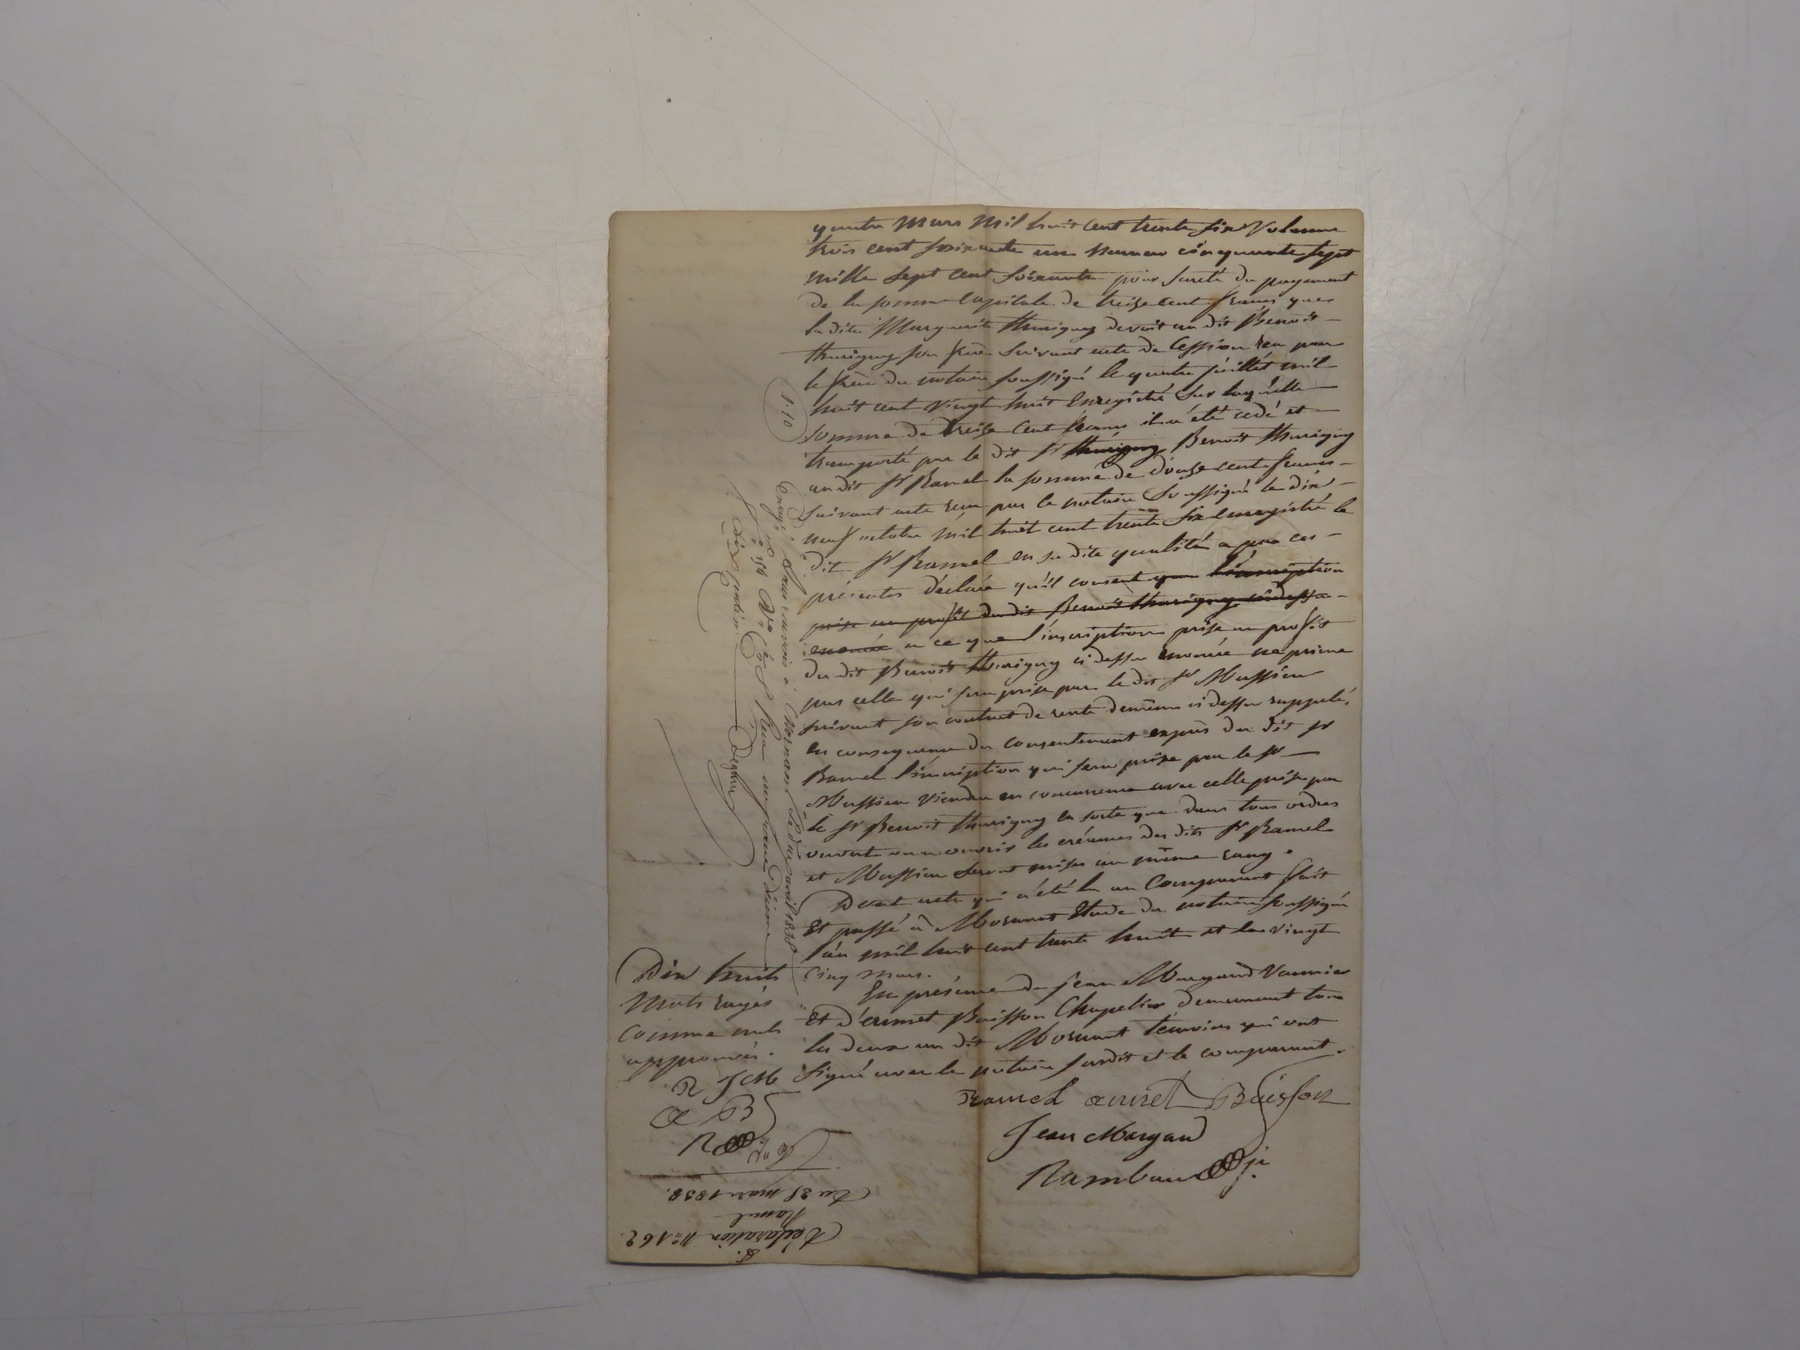 quatre Mars Mil huit cent trente six Volume
trois cent soixante un numero cinquante sept
mille sept cent soixante pour sureté du payement
de la somme capitale de treize cent francs que
la dite Marguerite thurigny devoit au dit Benoit
thurigny son frère Suivant acte de Cession reçu par
le frère du notaire soussigné le quatre juillet mil
huit cent vingt huit Enregistré Sur laquelle
somme de treize Cent francs il a été cédé et
transporté par le dit Sr thurigny Benoit thurigny
au dit Sr Ramel la somme de douze cent francs
Suivant acte reçu par le notaire Soussigné le dix
neuf octobre mil huit cent trente six enregistré le
dit Sr Ramel en sa dite qualité a par ces
présentes déclaré qu'il consent que l'inscription
prise au profit du dit Benoit thurigny ci dessu
enoncée a ce que l'inscription prise au profit
du dit Benoit thurigny ci dessu enoncée ne prime
pas celle qui sera prise par le dit Sr
suivant son contrat de vente demême ci dessu rappelé,
en consequence du consentement exprès du dit Sr
Ramel l'inscription qui sera prise par le Sr
viendra en concurrence avec celle prise par
le Sr Benoit thurigny en sorte que dans tous ordres
ouverts ou a ouvrir les créances des dits Sr Ramel
et seront mises au même rang.
Dont acte qui a été lu au Comparant fait
Et passé à Mornant Etude du notaire soussigné
l'an mil huit cent trente huit et le vingt
Cinq mars.
En présence de Jean Margand Vannier
Et d'ennet Buisson Chapelier demeurant tous
les deux au dit Mornant témoins qui ont
Signé avec le notaire susdit et le comparant.
Ramel Buisson
Jean Margand
Rambaud jn
1.10
Enregistré à Mornant le deux avril 1838
Reçu un franc décime
dix centimes
Dix huit
Mots rayés
Comme nuls
approuvés.
R JM
B
R
Du 25 mars 1838.
Ramel
Déclaration No 162.